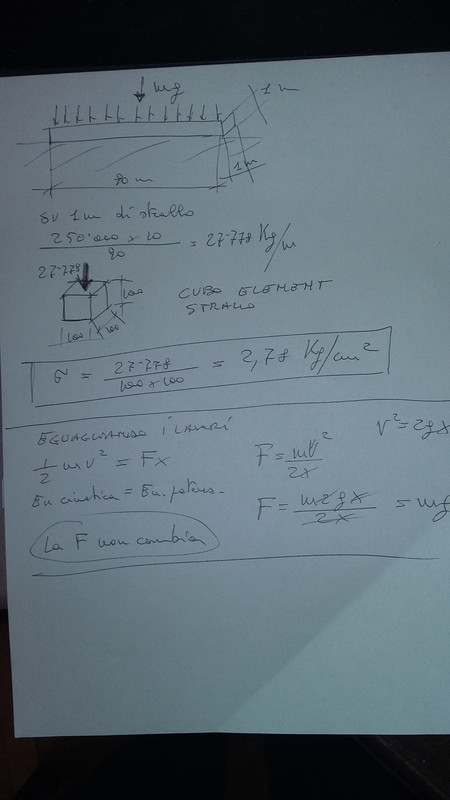 mg
1 m
1 m
90 m
su 1 m di strallo
250'000 x 10 / 90 = 27-778 Kg/m
27-778
100
100 100
CUBO ELEMENT
STRALLO
σ = 27-778 / 100 x 100 = 2,78 Kg/cm²
EGUAGLIANDO I LAVORI
V² = 2gx
1/2 mv² = Fx
F = mv² / 2x
En cinetica = En. potenz.
F = m2gx / 2x = mg
La F non cambia